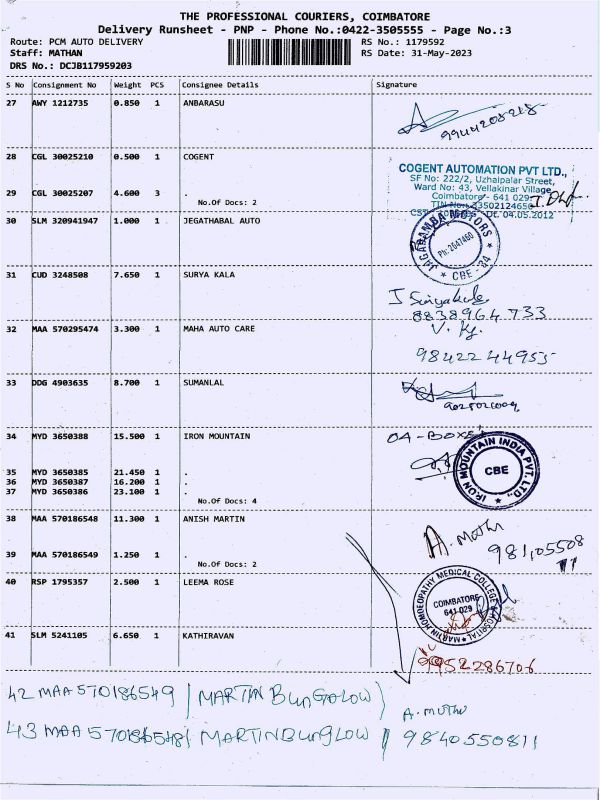 THE PROFESSIONAL COURIERS, COIMBATORE
Delivery Runsheet - PNP - Phone No.:0422-3505555 - Page No.:3
Route: PCM AUTO DELIVERY
RS No.: 1179592
Staff: MATHAN
RS Date: 31-May-2023
DRS No.: DCJB117959203
S No Consignment No Weight PCS Consignee Details Signature
27 AWY 1212735 0.850 1 ANBARASU
9944208218
28 CGL 30025210 0.500 1 COGENT
COGENT AUTOMATION PVT LTD.,
SF No: 222/2, Uzhaipalar Street,
Ward No: 43, Vellakinar Village
Coimbatore - 641 029
29 CGL 30025207 4.600 3 .
No.Of Docs: 2
Dt. 04.05.2012
30 SLM 320941947 1.000 1 JEGATHABAL AUTO
JAGADAMBA MOTORS
Ph: 2647460
CBE - 34
31 CUD 3248508 7.650 1 SURYA KALA
8838964733
32 MAA 570295474 3.300 1 MAHA AUTO CARE
V. Ky.
9842244955
33 DDG 4903635 8.700 1 SUMANLAL
34 MYD 3650388 15.500 1 IRON MOUNTAIN
04-BOXES
IRON MOUNTAIN INDIA PVT. LTD.,
CBE
35 MYD 3650385 21.450 1 .
36 MYD 3650387 16.200 1 .
37 MYD 3650386 23.100 1 .
No.Of Docs: 4
38 MAA 570186548 11.300 1 ANISH MARTIN
A. Muthu
39 MAA 570186549 1.250 1 .
No.Of Docs: 2
40 RSP 1795357 2.500 1 LEEMA ROSE
MARTIN HOMOEOPATHY MEDICAL COLLEGE & HOSPITAL
COIMBATORE
641-029
41 SLM 5241105 6.650 1 KATHIRAVAN
9952286706
42 MAA 570186549 (MARTIN BUNGALOW)
43 MAA 570186548 (MARTIN BUNGLOW)
A. Muthu
9840550811